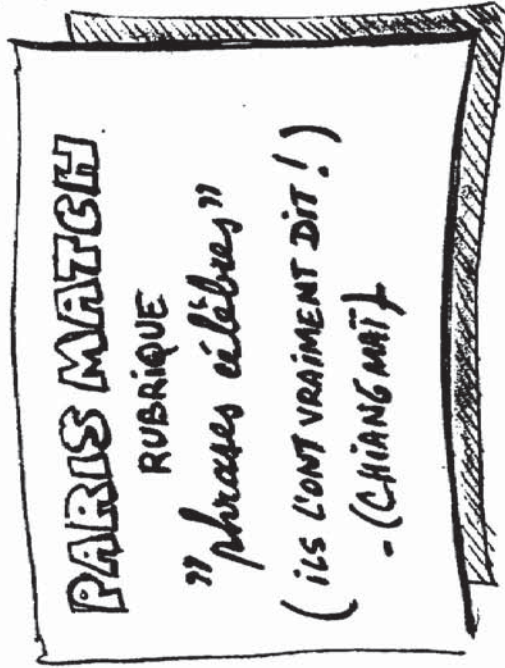 PARIS MATCH
RUBRIQUE
"phrases célèbres"
(iLS L'ONT VRAIMENT DIT !)
- (CHIANG MAÏ)